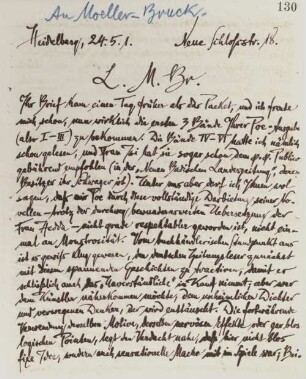 An Moeller-Bruck.
130
Heidelberg, 24.5.1. Neue Schloßstr. 18.
L. M. Br.
Ihr Brief kam einen Tag früher als das Packet, und ich freute
mich schon, nun wirklich die ersten 3 Bände Ihrer Poe-Ausgabe
(also I-III) zu bekommen. Die Bände IV-VI hatte ich nämlich
schon gelesen, und Frau Isi hat sie sogar schon dem großh. Publico
gebührend empfohlen (in der Neuen Badischen Landeszeitung, deren
Besitzer ihr Schwager ist). Unter uns aber darf ich Ihnen wol
sagen, daß mir Poe durch diese vollständige Darbietung seiner No-
vellen – trotz der durchweg bewundernswerten Uebersetzung der
Frau Hedda – nicht grade respektabler geworden ist, nicht ein-
mal an Monstrosität. Vom buchhändlerischen Standpunkt aus
ist es gewiß klug gewesen, den deutschen Zeitungsleser zunächst
mit diesen spannenden Geschichten zu tractiren, damit er
schließlich auch das Unverständliche in Kauf nimmt; aber wer
dem Künstler näherkommen möchte, dem unheimlichen Dichter
und verwegenen Denker, der wird enttäuscht. Die fortwährende
Verwendung derselben Motive, derselben nervösen Effekte oder gar blos
logischen Pointen, legt den Verdacht nahe, daß hier nicht blos
fixe Idee, sondern auch sensationelle Mache mit im Spiele war; Bei-